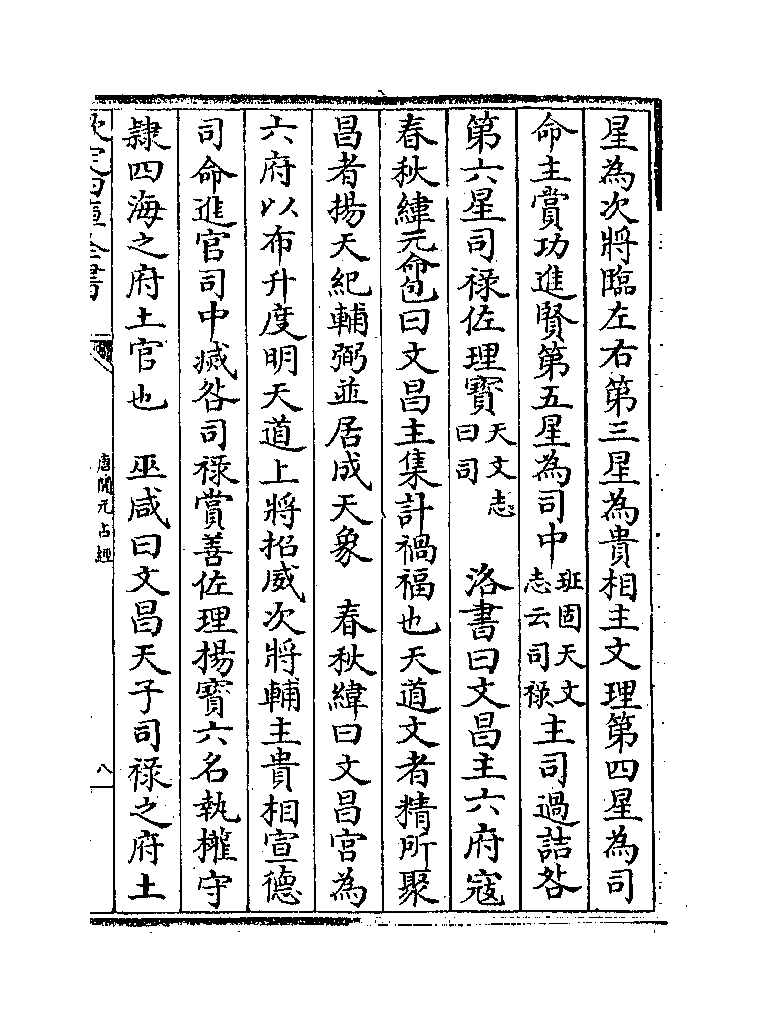 星為次將臨左右第三星為貴相主文理第四星為司
命主賞功進賢第五星為司中班固天文志云司祿主司過詰咎
第六星司祿佐理寳天文志曰司　洛書曰文昌主六府寇
春秋緯元命包曰文昌主集計禍福也天道文者精所聚
昌者揚天紀輔弼並居成天象　春秋緯曰文昌宮為
六府以布升度明天道上將招威次將輔主貴相宣德
司命進官司中㓕咎司祿賞善佐理揚寳六名執權守
隸四海之府土官也　巫咸曰文昌天子司祿之府土
欽定四庫全書
唐開元占經
八